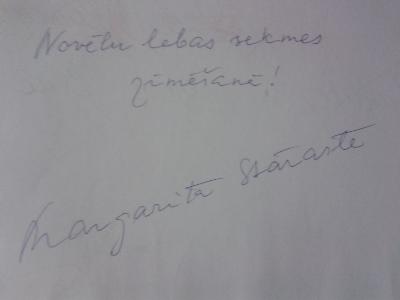 Novēlu labas sekmes
zīmēšanē!
Margarita Stāraste